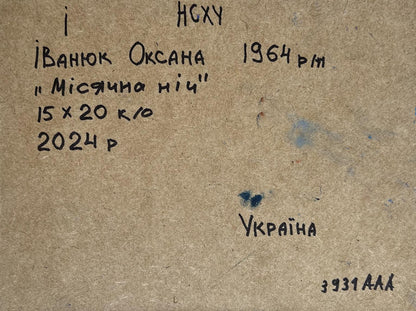 і НСХУ
Іванюк Оксана 1964 р/н
„Місячна ніч"
15 х 20 к/о
2024 р
Україна
3931 ААА